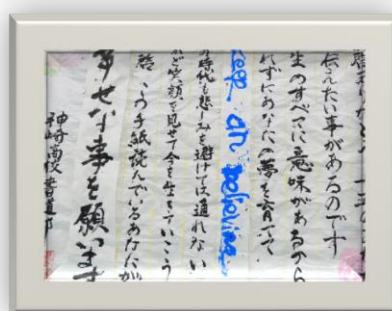 ありがとう 十五の
伝えたい事があるのです
生のすべてに意味があるから
れずにあなたの夢を育てて
eep on believing
の時代も悲しみを避けては通れない
れど笑顔を見せて今を生きていこう
啓 この手紙読んでいるあなたが
幸せな事を願います
神崎高校書道部